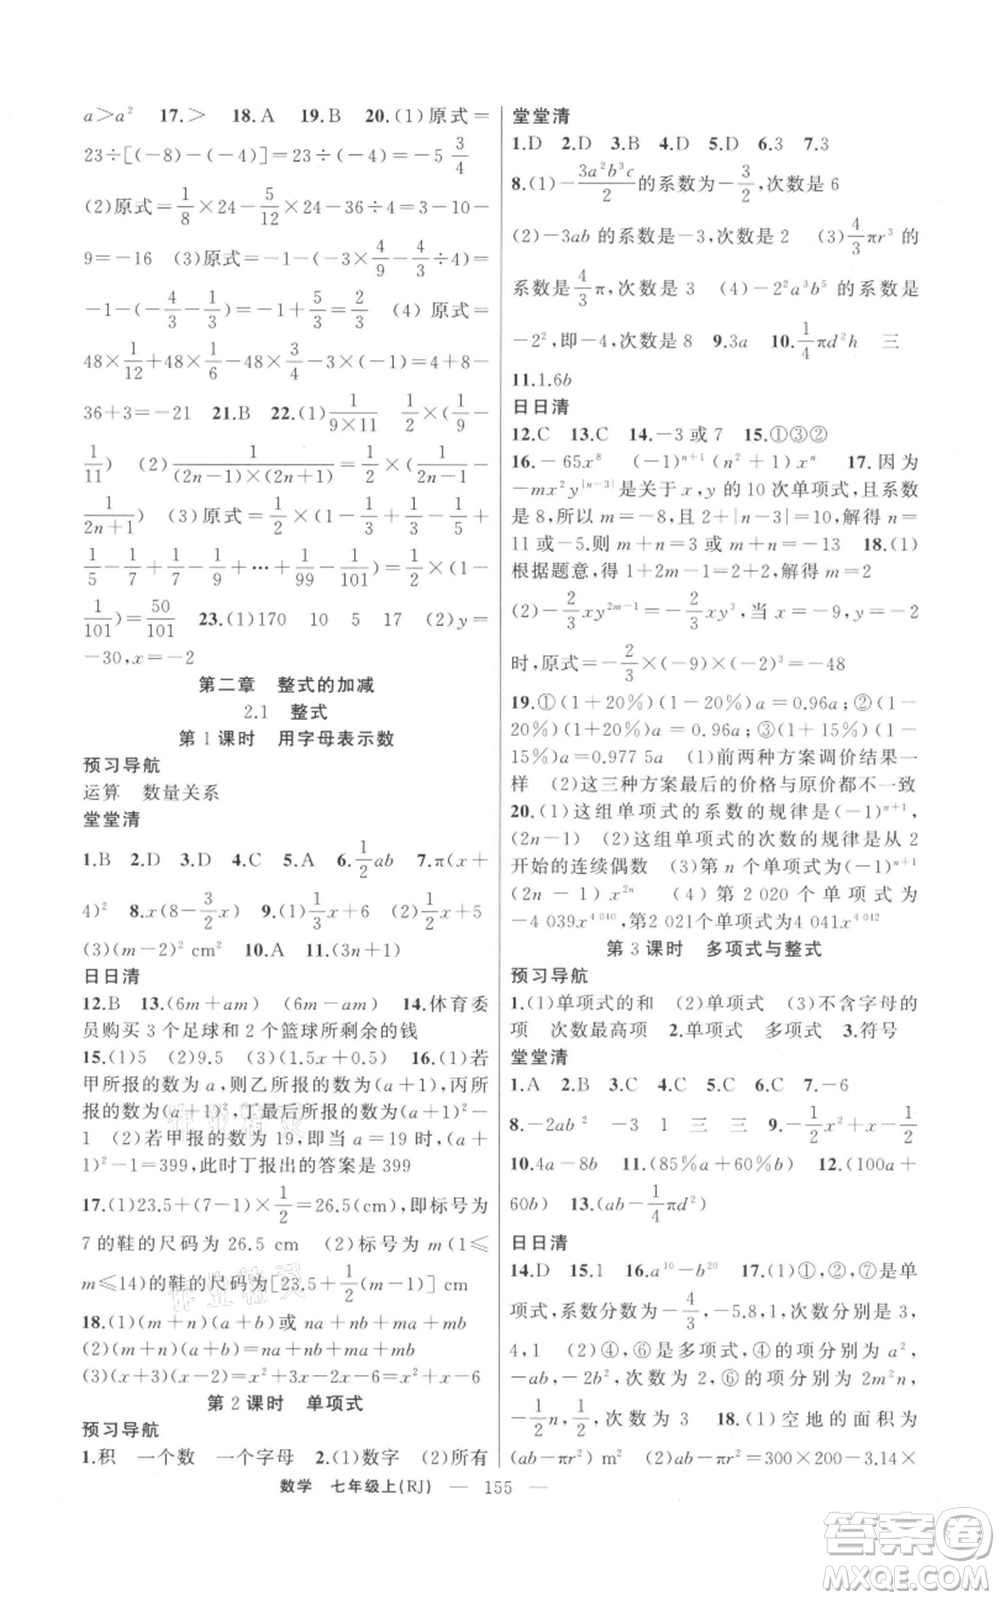 a＞a²　17.＞　18.A　19.B　20.(1)原式＝
23÷[(－8)－(－4)]＝23÷(－4)＝－5 3/4
(2)原式＝1/8×24－5/12×24－36÷4＝3－10－
9＝－16　(3)原式＝－1－(－3×4/9－4/3÷4)＝
－1－(－4/3－1/3)＝－1＋5/3＝2/3　(4)原式＝
48×1/12＋48×1/4－48×3/4－3×(－1)＝4＋8－
36＋3＝－21　21.B　22.(1)1/(9×11)　1/2×(1/9－
1/11)　(2)1/((2n－1)×(2n＋1))　1/2×(1/(2n－1)－
1/(2n＋1))　(3)原式＝1/2×(1－1/3＋1/3－1/5＋
1/5－1/7＋1/7－1/9＋…＋1/99－1/101)＝1/2×(1－
1/101)＝50/101　23.(1)170　10　5　17　(2)y＝
－30,x＝－2
第二章　整式的加减
2.1　整式
第1课时　用字母表示数
预习导航
运算　数量关系
堂堂清
1.B　2.D　3.D　4.C　5.A　6.1/2ab　7.π(x＋
4)²　8.x(8－3/2x)　9.(1)1/3x　(2)1/2x＋5
(3)(m－2)² cm²　10.A　11.(3n＋1)
日日清
12.B　13.(6m＋am)　(6m－am)　14.体育委
员购买3个足球和2个篮球所剩余的钱
15.(1)5　(2)9.5　(3)(1.5x＋0.5)　16.(1)若
甲所报的数为a,则乙所报的数为(a＋1),丙所
报的数为(a＋1)²,丁最后所报的数为(a＋1)²－
1　(2)若甲报的数为19,即当a＝19时,(a＋
1)²－1＝399,此时丁报出的答案是399
17.(1)23.5＋(7－1)×1/2＝26.5(cm),即标号为
7的鞋的尺码为26.5 cm　(2)标号为m(1≤
m≤14)的鞋的尺码为[23.5＋1/2(m－1)] cm
18.(1)(m＋n)(a＋b)或na＋nb＋ma＋mb
(2)(m＋n)(a＋b)＝na＋nb＋ma＋mb
(3)(x＋3)(x－2)＝x²＋3x－2x－6＝x²＋x－6
第2课时　单项式
预习导航
1.积　一个数　一个字母　2.(1)数字　(2)所有
堂堂清
1.D　2.D　3.B　4.D　5.D　6.3　7.3
8.(1)－3a²b³c/2的系数为－3/2,次数是6
(2)－3ab的系数是－3,次数是2　(3)4/3πr³的
系数是4/3π,次数是3　(4)－2²a³b⁵的系数是
－2²,即－4,次数是8　9.3a　10.1/4πd²h　三
11.1.6b
日日清
12.C　13.C　14.－3或7　15.①③②
16.－65x⁸　(－1)ⁿ⁺¹(n²＋1)xⁿ　17.因为
－mx²y^|n－3|是关于x,y的10次单项式,且系数
是8,所以m＝－8,且2＋|n－3|＝10,解得n＝
11或－5.则m＋n＝3或m＋n＝－13　18.(1)
根据题意,得1＋2m－1＝4,解得m＝2
(2)－2/3xy^(2m－1)＝－2/3xy³,当x＝－9,y＝－2
时,原式＝－2/3×(－9)×(－2)³＝－48
19.①(1＋20%)(1－20%)a＝0.96a;②(1－
20%)(1＋20%)a＝0.96a;③(1＋15%)(1－
15%)a＝0.977 5a　(1)前两种方案调价结果一
样　(2)这三种方案最后的价格与原价都不一致
20.(1)这组单项式的系数的规律是(－1)ⁿ⁺¹,
(2n－1)　(2)这组单项式的次数的规律是从2
开始的连续偶数　(3)第n个单项式为(－1)ⁿ⁺¹
(2n－1)x²ⁿ　(4)第2 020个单项式为
－4 039x^4 040,第2 021个单项式为4 041x^4 042
第3课时　多项式与整式
预习导航
1.(1)单项式的和　(2)单项式　(3)不含字母的
项　次数最高项　2.单项式　多项式　3.符号
堂堂清
1.A　2.B　3.C　4.C　5.C　6.A　7.－6
8.－2ab²　－3　1　三　三　9.－1/2x²＋x－1/2
10.4a－8b　11.(85%a＋60%b)　12.(100a＋
60b)　13.(ab－1/4πd²)
日日清
14.D　15.1　16.a¹⁰－b²⁰　17.(1)①,②,⑦是单
项式,系数分数为－4/3,－5.8,1,次数分别是3,
4,1　(2)④,⑥是多项式,④的项分别为a²,
－1/2ab,－2b²,次数为2,⑥的项分别为2m²n,
－1/2,n²,次数为3　18.(1)空地的面积为
(ab－πr²)m²　(2)ab－πr²＝500×200－3.14×
数学　七年级上(RJ)　—　155　—
作业精灵
作业精灵
答案卷
MXQE.COM